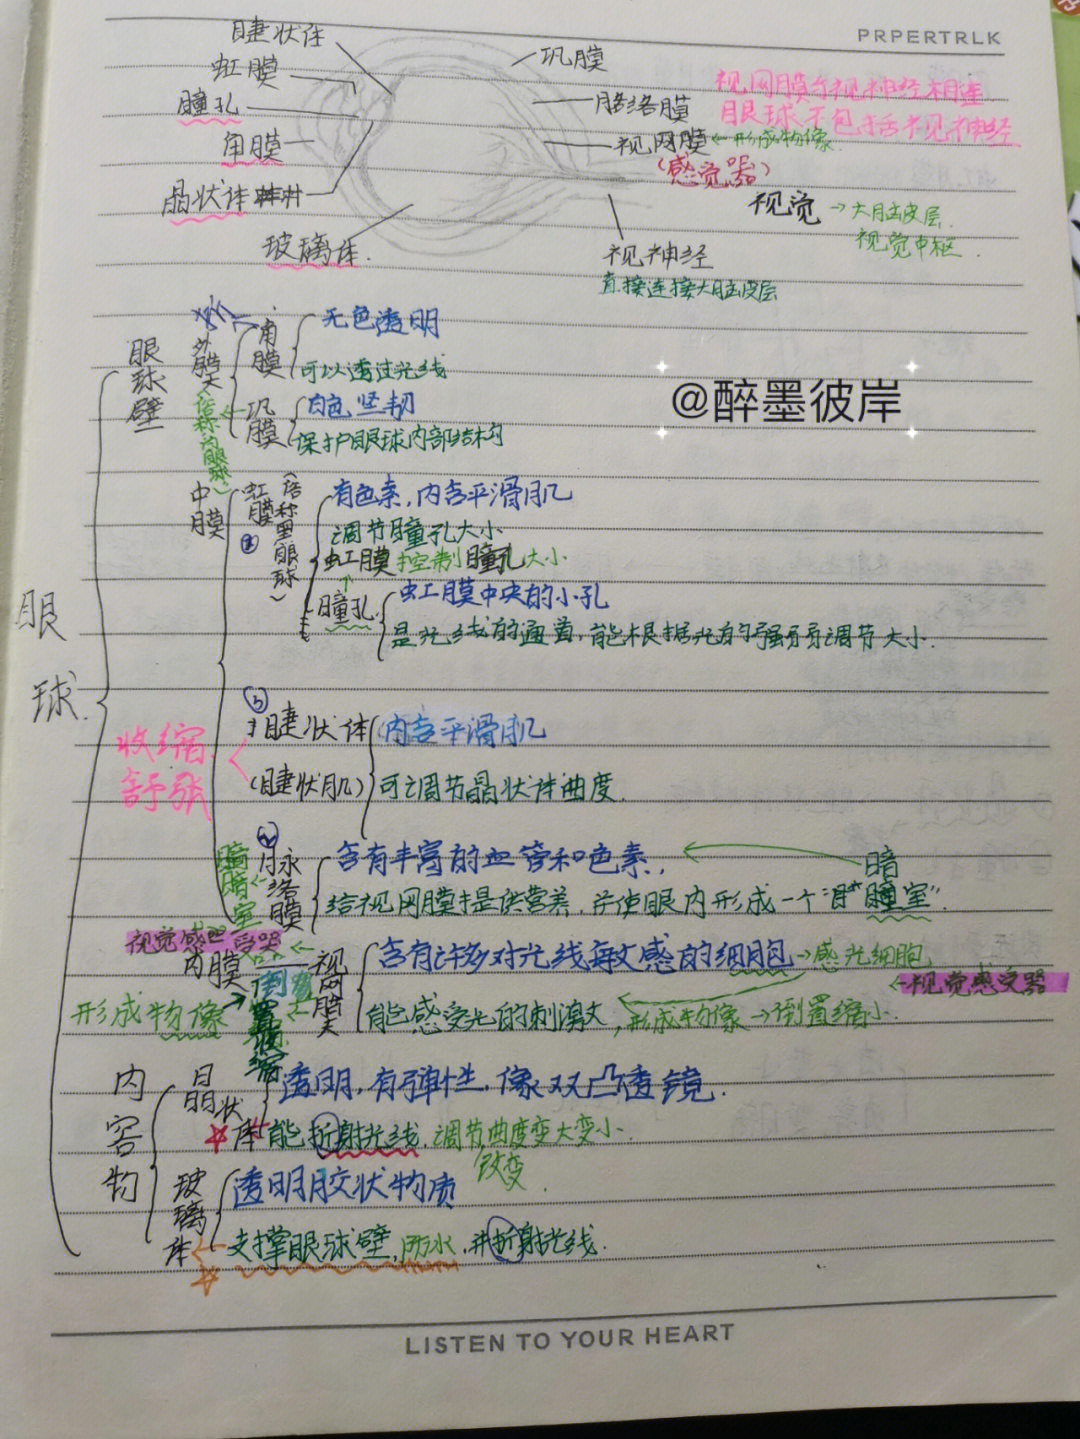 PRPERTRLK
睫状体
虹膜
瞳孔
角膜
晶状体
玻璃体.
巩膜
脉络膜
视网膜←形成物像.
(感觉器)
视网膜与视神经相连
眼球不包括视神经
视觉→大脑皮层.
视觉中枢.
视神经
直接连接大脑皮层
眼球.
眼球壁
外膜
(俗称白眼球)
角膜
无色透明
可以透过光线
@醉墨彼岸
巩膜
白色坚韧
保护眼球内部结构
中膜
虹膜
(俗称黑眼球)
有色素,内含平滑肌
调节瞳孔大小
虹膜控制瞳孔大小.
瞳孔
虹膜中央的小孔
是光线的通道,能根据光的强弱调节大小.
③
睫状体
(睫状肌)
内含平滑肌
可调节晶状体曲度.
收缩.
舒张
脉络膜
含有丰富的血管和色素,
暗
给视网膜提供营养,并使眼内形成一个"暗室".
暗室
内膜
视网膜
含有许多对光线敏感的细胞→感光细胞
←视觉感受器
能感受光的刺激,形成物像→倒置缩小.
形成物像
内容物
晶状体
透明,有弹性.像双凸透镜.
能折射光线.调节曲度变大变小.
改变
玻璃体
透明胶状物质
支撑眼球壁,防水,并折射光线.
LISTEN TO YOUR HEART